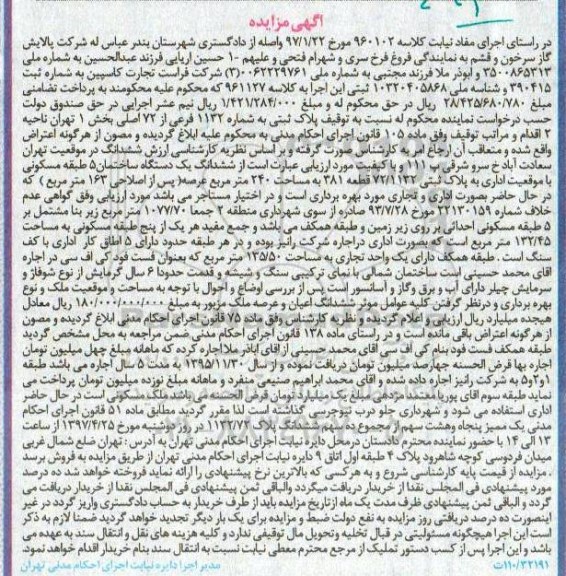 آگهی مزایده
در راستای اجرای مفاد نیابت کلاسه ۹۶۰۱۰۲ مورخ ۹۷/۱/۲۲ واصله از دادگستری شهرستان بندر عباس له شرکت پالایش
گاز سرخون و قشم به نمایندگی فروغ فرخ سری و شهرام فتحی و علیهم ۱- حسین اربابی فرزند عبدالحسین به شماره ملی
۳۵۰۰۸۶۵۳۱۳ وابوذر ملا فرزند مجتبی به شماره ملی ۰۰۶۲۲۲۹۷۶۱(۳ شرکت فراست تجارت کاسپین به شماره ثبت
۳۹۰۴۱۵ و شناسه ملی ۱۰۳۲۰۴۰۵۸۶۸ ثبتی این اجرا به کلاسه ۹۶۱۱۲۷ که محکوم علیه محکومند به پرداخت تضامنی
مبلغ ۲۸/۴۲۵/۶۸۰/۷۸۰ ریال در حق محکوم له و مبلغ ۱/۴۲۱/۲۸۴/۰۰۰ ریال نیم عشر اجرایی در حق صندوق دولت
حسب درخواست نماینده محکوم له نسبت به توقیف پلاک ثبتی به شماره ۱۱۳۲ فرعی از ۷۲ اصلی بخش ۱ تهران ناحیه
۲ اقدام و مراتب توقیف وفق ماده ۱۰۵ قانون اجرای احکام مدنی به محکوم علیه ابلاغ گردیده و مصون از هرگونه اعتراض
واقع شده و متعاقب آن ارجاع امر به کارشناس صورت گرفته و بر اساس نظریه کارشناسی ارزش ششدانگ در موقعیت تهران
سعادت آباد خ سرو شرقی پ ۱۱۱ و با کیفیت مورد ارزیابی عبارت است از ششدانگ یک دستگاه ساختمان ۵ طبقه مسکونی
با موقعیت اداری به پلاک ثبتی ۷۲/۱۱۳۲ قطعه ۳۸۱ به مساحت ۲۴۰ متر مربع عرصه( پس از اصلاحی ۱۶۳ متر مربع ) که
در حال حاضر بصورت اداری و تجاری مورد بهره برداری است و در اختیار مستاجر می باشد مورد ارزیابی وفق گواهی عدم
خلاف شماره ۲۲۱۳۰۱۵۹ مورخ ۹۳/۷/۲۸ صادره از سوی شهرداری منطقه ۲ جمعا ۱۰۷۷/۷۰ متر مربع زیر بنا مشتمل بر
۵ طبقه مسکونی احداثی بر روی زیر زمین و طبقه همکف می باشد و جمع مفید هر یک از پنج طبقه مسکونی به مساحت
۱۳۲/۴۵ متر مربع است که بصورت اداری دراجاره شرکت رانیر بوده و در هر طبقه حدود دارای ۵ اطاق کار اداری با کف
سنگ است . طبقه همکف دارای یک واحد تجاری به مساحت ۱۳۵/۵۰ متر مربع که بعنوان فست فود کی اف سی در اجاره
اقای محمد حسینی است ساختمان شمالی با نمای ترکیبی سنگ و شیشه و قدمت حدودا ۶ سال گرمایش از نوع شوفاژ و
سرمایش چیلر دارای آب و برق وگاز و آسانسور است پس از بررسی اوضاع و احوال با توجه به مساحت و موقعیت ملک و نوع
بهره برداری و درنظر گرفتن کلیه عوامل موثر ششدانگ اعیان و عرصه ملک مزبور به مبلغ ۱۸۰/۰۰۰/۰۰۰/۰۰۰ ریال معادل
هیجده میلیارد ریال ارزیابی و اعلام گردیده و نظریه کارشناس وفق ماده ۷۵ قانون اجرای احکام مدنی ابلاغ گردیده و مصون
از هرگونه اعتراض باقی مانده است و در راستای ماده ۱۳۸ قانون اجرای احکام مدنی ضمن مراجعه به محل مشخص گردید
طبقه همکف فست فود بنام کی اف سی اقای محمد حسینی از آقای اباذر ملا اجاره کرده که ماهانه مبلغ چهل میلیون تومان
اجاره بها قرض الحسنه چهارصد میلیون تومان دریافت نموده و از سال ۱۳۹۵/۱۱/۳۰ به مدت ۵ سال اجاره می باشد طبقه
۱و۲و۵ به شرکت رانیز اجاره داده شده و اقای محمد ابراهیم صنیعی منفرد و ماهانه مبلغ نوزده میلیون تومان پرداخت می
نماید طبقه سوم اقای پور
اداری استفاده می شود و شهرداری جلو درب نیوجرسی گذاشته است لذا مقرر گردید مطابق ماده ۵۱ قانون اجرای احکام
مدنی یک ممیز پنجاه وهشت سهم از مجموع ده سهم ششدانگ پلاک ثبتی ۷۲/۱۱۳۲ در روز دوشنبه مورخ ۱۳۹۷/۴/۲۵ از ساعت
۱۳ الی ۱۴ با حضور نماینده محترم دادستان درمحل دایره نیابت اجرای احکام مدنی تهران به آدرس : تهران ضلع شمال غربی
میدان فردوسی کوچه شاهرود پلاک ۴ طبقه اول اتاق ۹ دایره نیابت اجرای احکام مدنی تهران از طریق مزایده به فروش برسد
. مزایده از قیمت پایه کارشناسی شروع و به هرکسی که بالاترین نرخ پیشنهادی را ارائه نماید فروخته خواهد شد ده درصد
مورد پیشنهادی فی المجلس نقدا از خریدار دریافت میگردد والباقی ثمن پیشنهادی فی المجلس نقدا از خریدار دریافت می
گردد و الباقی ثمن پیشنهادی ظرف مدت یک ماه ازتاریخ مزایده باید از طرف خریدار به حساب دادگستری واریز گردد در غیر
اینصورت ده درصد دریافتی روز مزایده به نفع دولت ضبط و مزایده برای یک بار دیگر تجدید خواهد گردید ضمنا لازم به ذکر
است این اجرا هیچگونه مسئولیتی در قبال تخلیه وتحویل مال توقیفی ندارد و کلیه هزینه های نقل و انتقال سند به عهده می
باشد و این اجرا پس از کسب دستور تملیک از مرجع محترم معطی نیابت نسبت به انتقال سند بنام خریدار اقدام خواهد نمود.
۱۱۰/۳۲۱۹۱ت
مدیر اجرا دایره نیابت اجرای احکام مدنی تهران